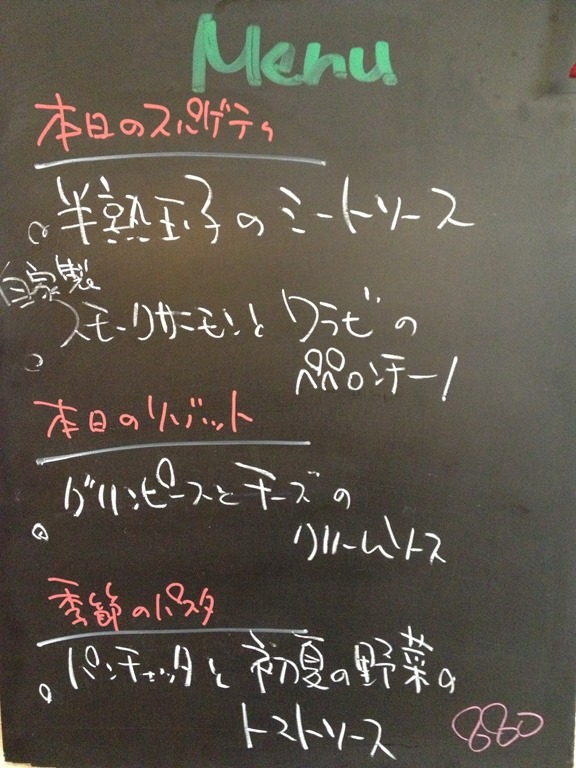 Menu
本日のスパゲティ
半熟玉子のミートソース
自家製
スモークサーモンとワラビの
ペペロンチーノ
本日のリゾット
グリンピースとチーズの
クリームリゾット
季節のパスタ
パンチェッタと初夏の野菜の
トマトソース
880